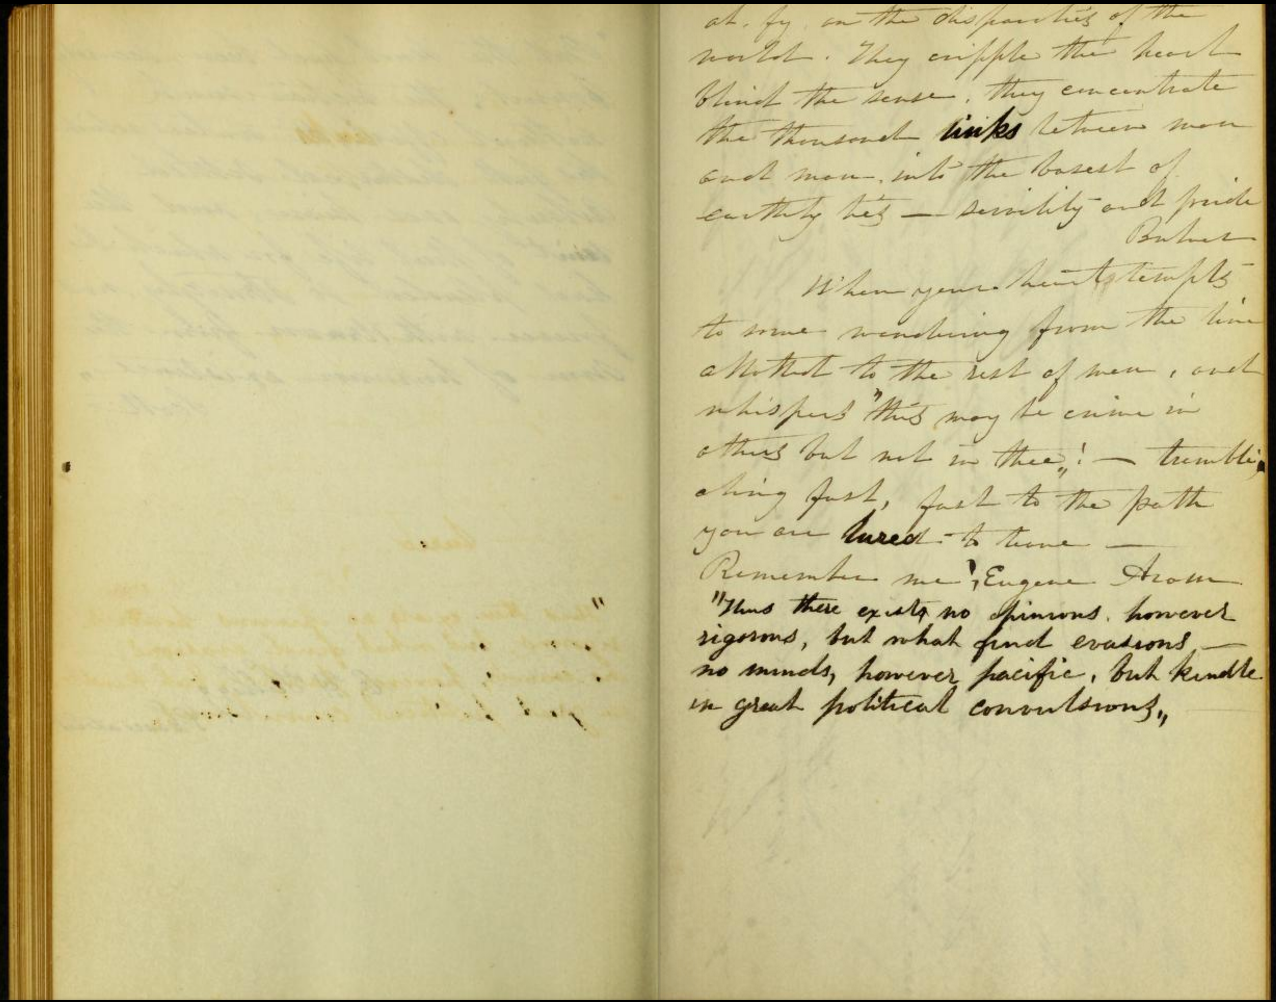 oh. fy. on the disparities of the
world. They cripple the heart
blind the sense, they concentrate
the thousand links between man
and man, into the basest of
earthly ties — servility and pride
Bulwer
When your heart tempts
to some wandering from the line
allotted to the rest of men, and
whispers "this may be crime in
others but not in thee„! — tremble,
cling fast, fast to the path
you are lured to leave —
Remember me!, Eugene Aram
"Thus there exists no opinions, however
rigorous, but what find evasions —
no minds, however pacific, but kindle
in great political convulsions„